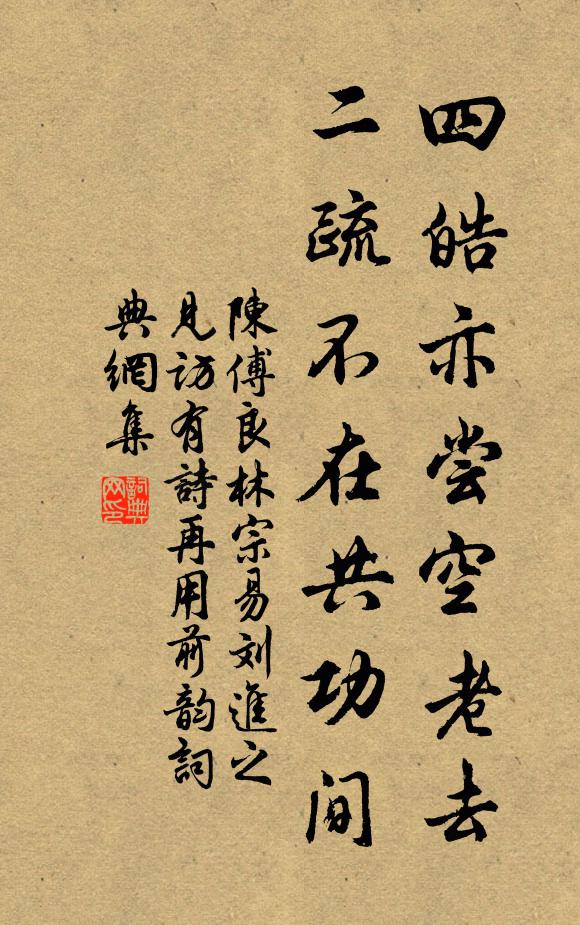 四皓亦尝空老去
二疏不在共功间
陳傅良林宗易刘進之
見訪有詩再用前韵詞
典網集
詞典
网印